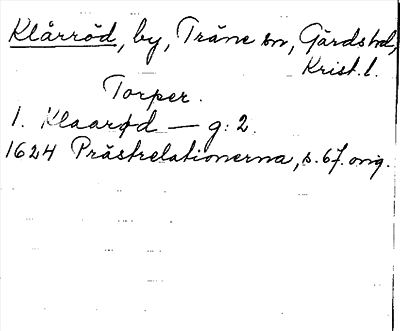 Klårröd, by, Träne sn, Gärds hd,
Krist. l.
Torper.
1. Klaarød — g: 2.
1624 Prästrelationerna, s. 67. orig.